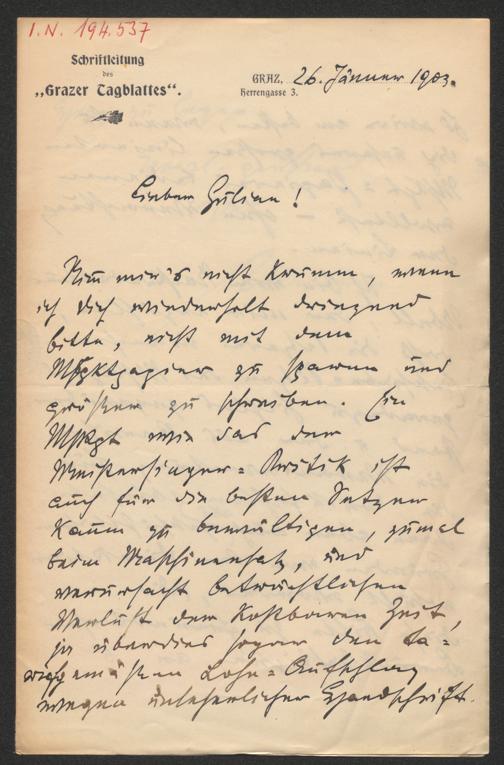 I.N. 194.537
Schriftleitung
des
„Grazer Tagblattes“.
GRAZ, 26. Jänner 1903.
Herrengasse 3.
Lieber Julian!
Nimm mir's nicht krumm, wenn
ich dich wiederholt dringend
bitte, nicht mit dem
Mskptpapier zu sparen und
größer zu schreiben. Ein
Mskpt wie das der
Meistersinger-Kritik ist
auch für die besten Setzer
kaum zu bewältigen, zumal
beim Maschinensatz, und
verursacht beträchtlichen
Verlust der kostbaren Zeit,
ja überdies sogar den ta=
rifgemäßen Lohn-Aufschlag
wegen unleserlicher Handschrift.